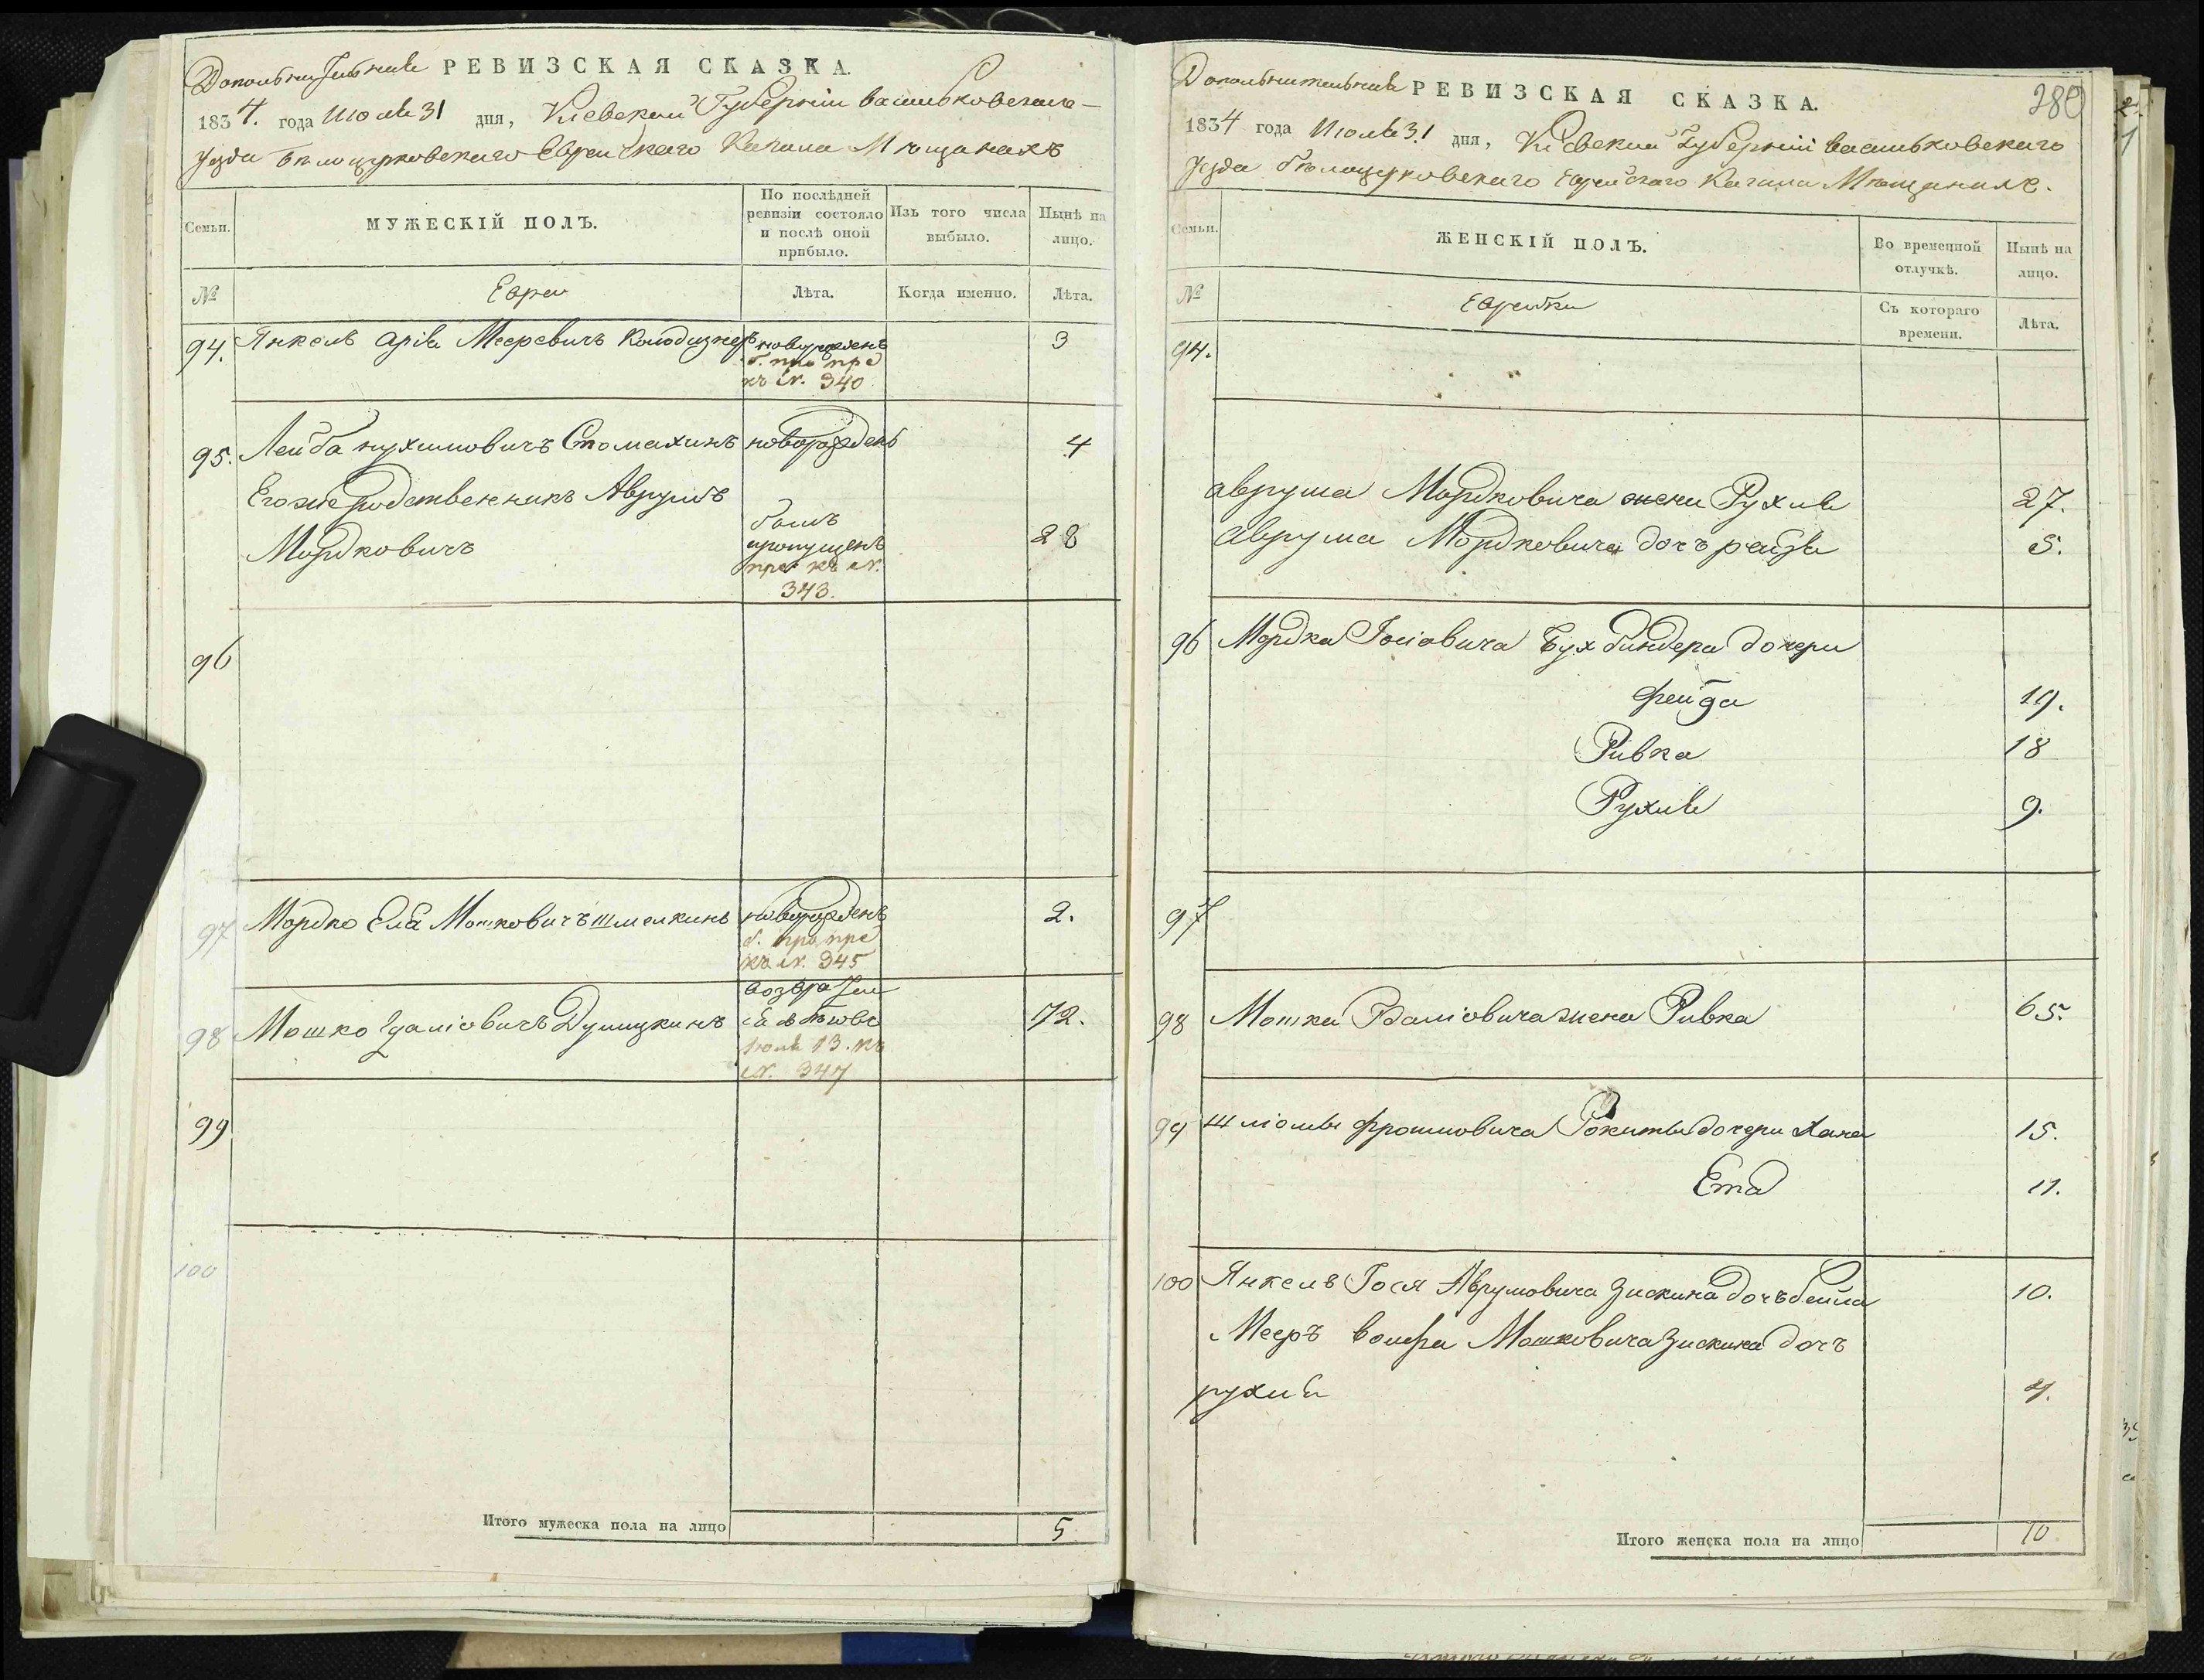 Дополнительная РЕВИЗСКАЯ СКАЗКА.
1834. года Июля 31 дня, Киевской Губернии Васильковскаго
уезда Белоцерковскаго Еврейскаго Кагала Мещанахъ
Семьи.
МУЖЕСКІЙ ПОЛЪ.
По послѣдней ревизіи состояло и послѣ оной прибыло.
Изъ того числа выбыло.
Нынѣ на лицо.
№
Евреи
Лѣта.
Когда именно.
Лѣта.
94. Янкель Аріа Мееровичъ Колодизнеръ новорожденъ 3
къ №. 340
95. Лейба Нухимовичъ Стомахинъ новорожденъ 4
Его же родственникъ Аврумъ
Мордковичъ былъ пропущенъ 28
къ №.
343.
96
97 Мордко Еля Мошковичъ Шмелкинъ новорожденъ 2.
къ №. 345
98 Мошко Гдаліовичъ Дулицкинъ 72.
Июля 13. къ
№. 347
99
100
Итого мужеска пола на лицо 5
Дополнительная РЕВИЗСКАЯ СКАЗКА.
280
1834 года Июля 31 дня, Киевской Губерніи Васильковскаго
уезда Белоцерковскаго Еврейскаго Кагала Мещанахъ.
Семьи.
ЖЕНСКІЙ ПОЛЪ.
Во временной отлучкѣ.
Нынѣ на лицо.
№
Еврейки
Съ котораго времени.
Лѣта.
94.
Аврума Мордковича жена Рухля 27.
Аврума Мордковича дочъ Рейзя 5.
96 Мордка Іосіовича Бухбиндера дочери
Фейга 19.
Ривка 18
Рухля 9.
97
98 Мошка Гдаліовича жена Ривка 65.
99 Шліомы Фроимовича Рокиты дочери Хана 15.
Ета 11.
100 Янкель Іося Аврумовича Зискина дочъ Бейла 10.
Мееръ Вольфа Мошковича Зискина дочъ
Рухля 4.
Итого женска пола на лицо 10